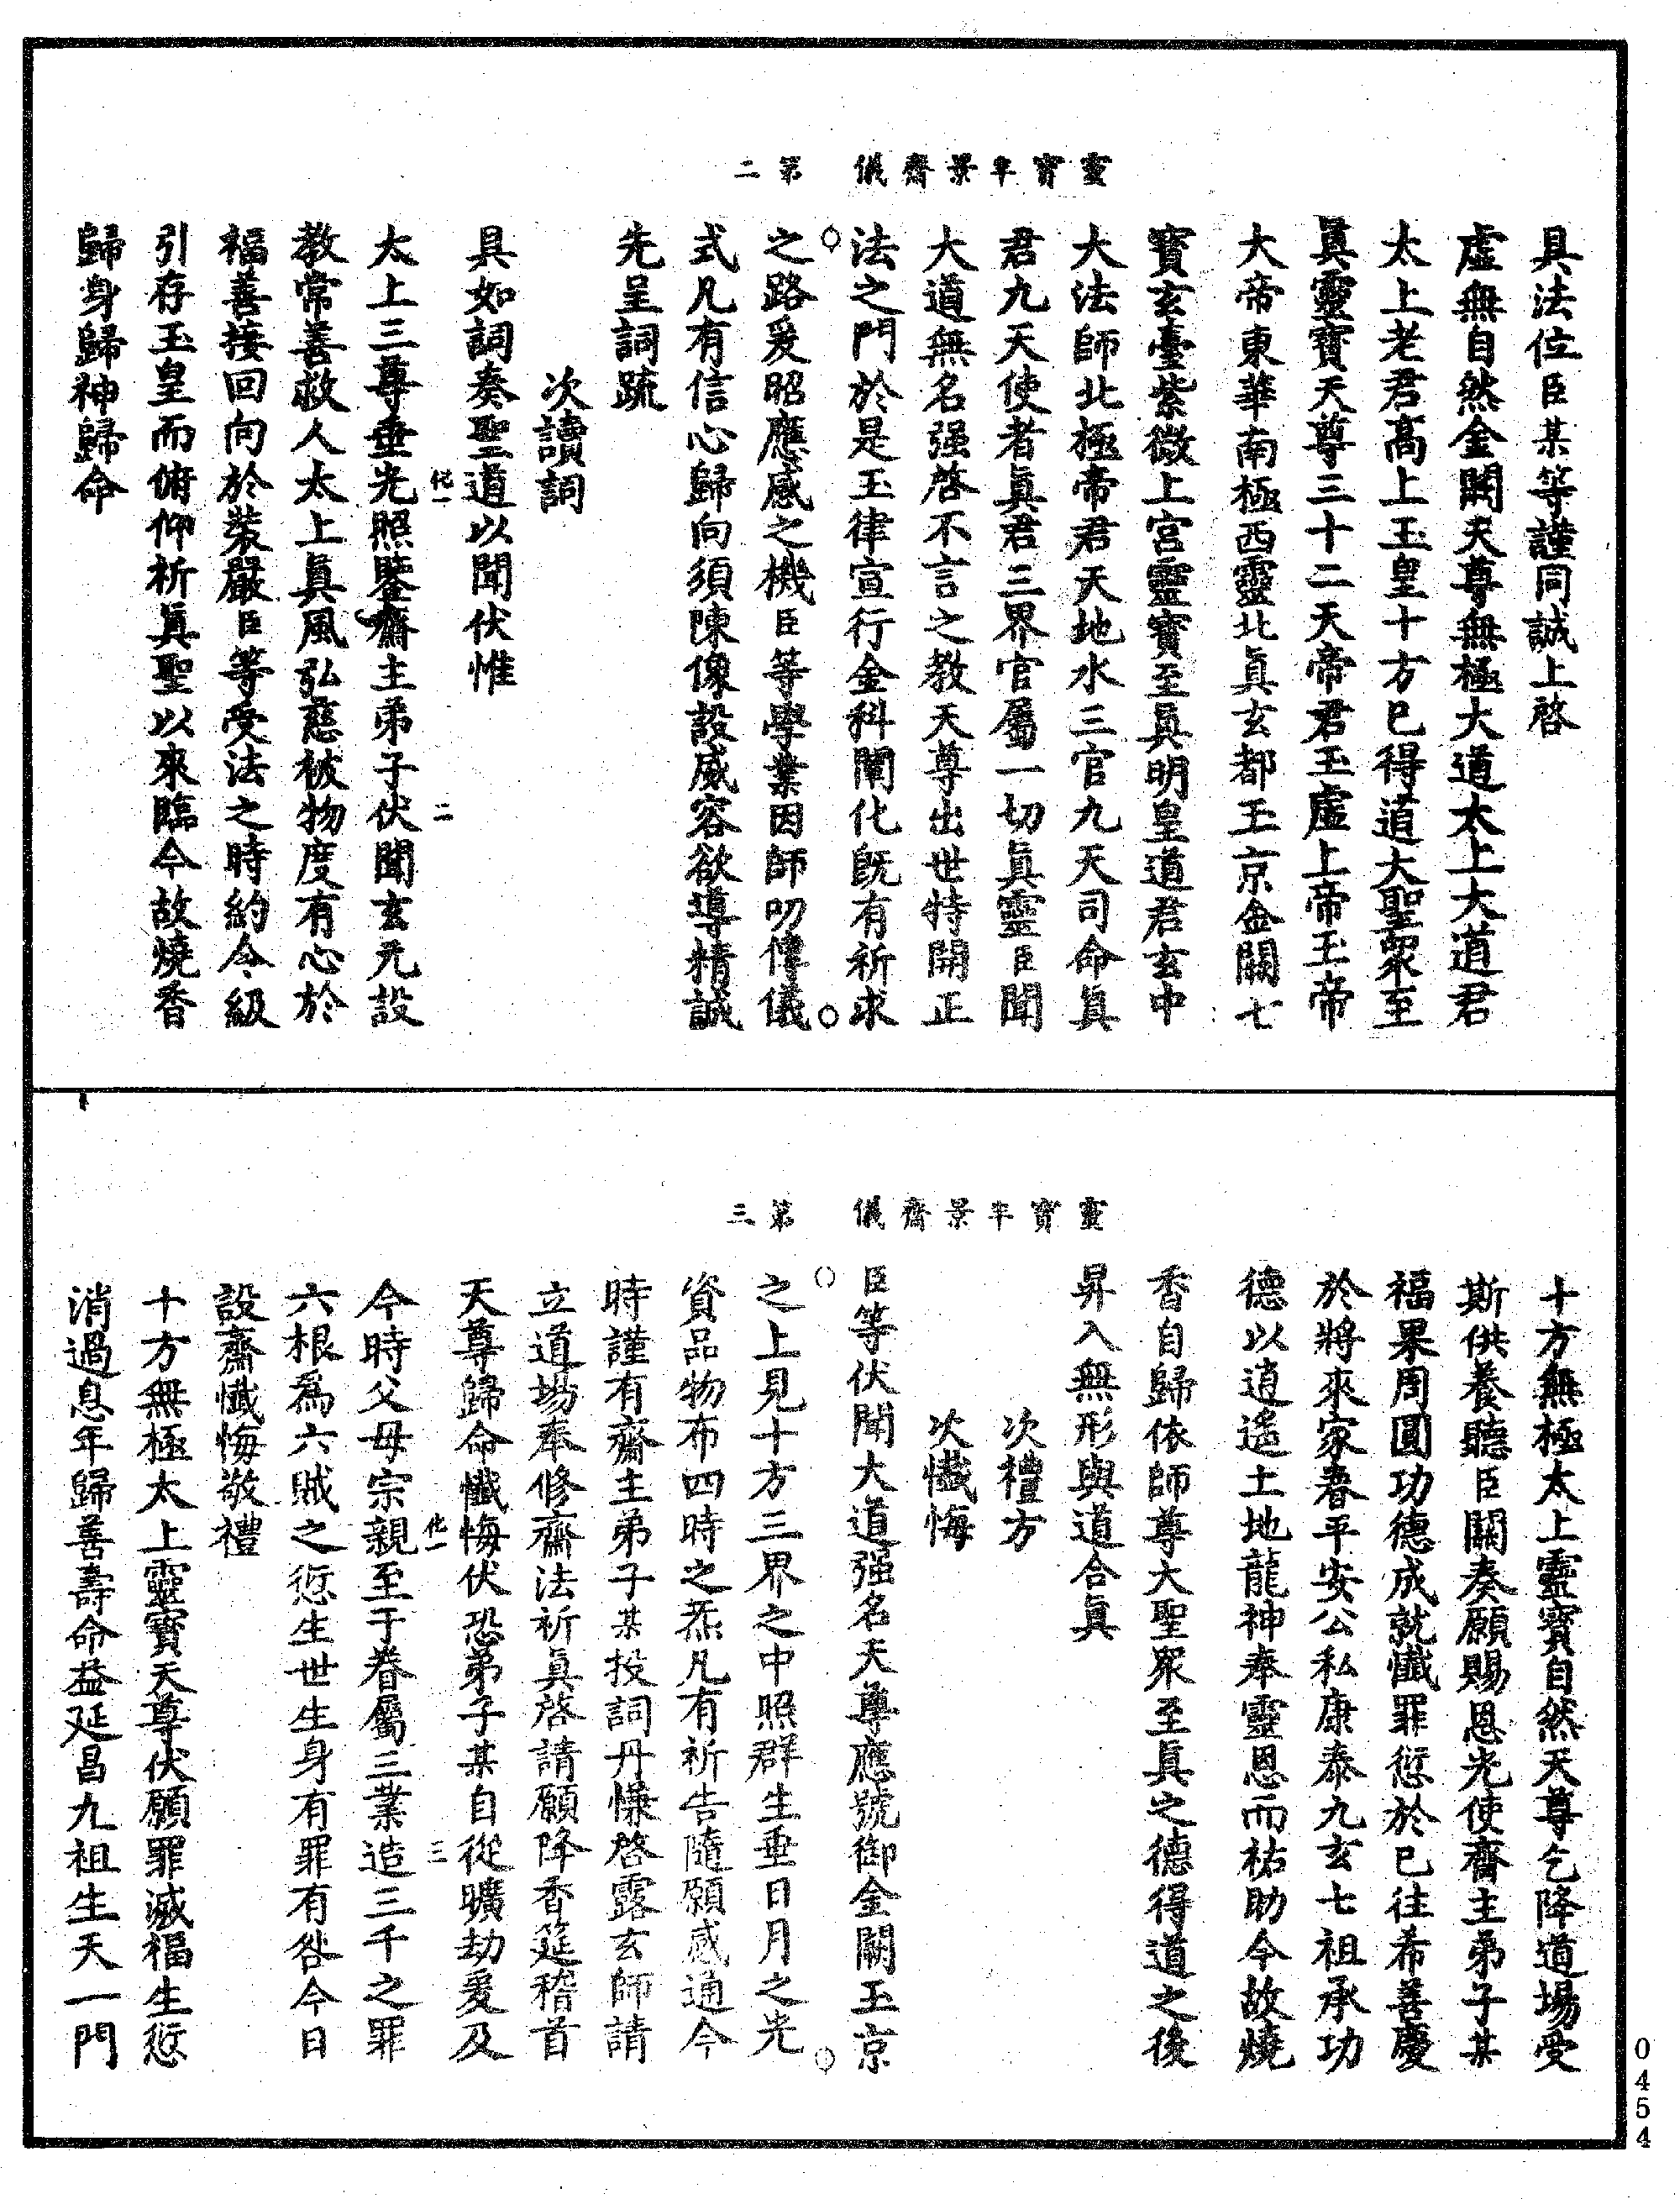 靈寶半景齋儀　第二
具法位臣某等謹同誠上啓
虛無自然金闕天尊無極大道太上大道君
太上老君高上玉皇十方已得道大聖衆至
眞靈寶天尊三十二天帝君玉虛上帝玉帝
大帝東華南極西靈北眞玄都玉京金闕七
寶玄臺紫微上宮靈寶至眞明皇道君玄中
大法師北極帝君天地水三官九天司命眞
君九天使者眞君三界官屬一切眞靈臣聞
大道無名强啓不言之教天尊出世特開正
法之門於是玉律宣行金科闡化既有祈求
之路爰昭應感之機臣等學業因師叨傳儀
式凡有信心歸向須陳像設威容欲導精誠
先呈詞䟽
次讀詞
具如詞奏聖道以聞伏惟
太上三尊垂光照鑒齋主弟子伏聞玄元設
教常善救人太上眞風弘慈被物度有心於
福善接回向於裝嚴臣等受法之時約令級
引存玉皇而俯仰祈眞聖以來臨今故燒香
歸身歸神歸命
二
靈寶半景齋儀　第三
十方無極太上靈寶自然天尊乞降道場受
斯供養聽臣關奏願賜恩光使齋主弟子某
福果周圓功德成就懺罪愆於已往希善慶
於將來家眷平安公私康泰九玄七祖承功
德以逍遙土地龍神奉靈恩而祐助今故燒
香自歸依師尊大聖衆至眞之德得道之後
昇入無形與道合眞
次禮方
次懺悔
臣等伏聞大道强名天尊應號御金闕玉京
之上見十方三界之中照群生垂日月之光
資品物布四時之炁凡有祈告隨願感通今
時謹有齋主弟子某投詞丹慊啓露玄師請
立道場奉修齋法祈眞啓請願降香筵稽首
天尊歸命懺悔伏恐弟子某自從曠劫爰及
今時父母宗親至于眷屬三業造三千之罪
六根爲六賊之愆生世生身有罪有咎今日
設齋懺悔敬禮
十方無極太上靈寶天尊伏願罪滅福生愆
消過息年歸善壽命益延昌九祖生天一門
三
0454